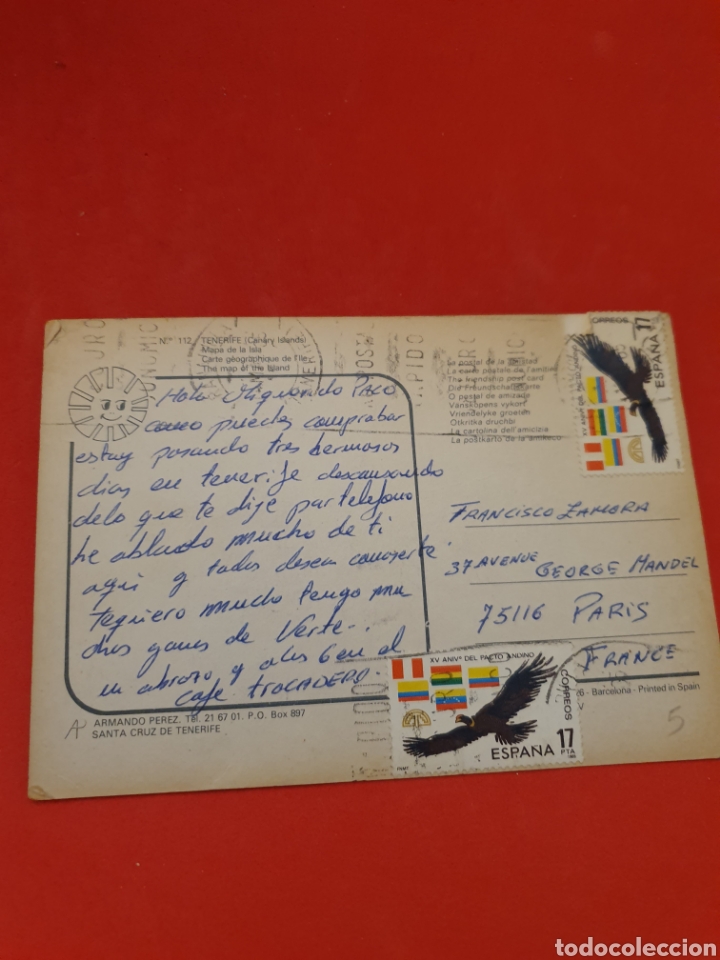 Nº 112 TENERIFE (Canary Islands)
Mapa de la Isla
Carte géographique de l'Ile
The map of the Island
Hola Miquerido Paco
como puedes comprobar
estoy pasando tres hermosos
dias en tenerife descansando
delo que te dije por telefono
he ablado mucho de ti
aqui y todos desean conoserte
tequiero mucho tengo mu
chas ganas de Verte.
un abrazo y a las 6 en el
cafe trocadero.
ARMANDO PEREZ. Tel. 21 67 01. P.O. Box 897
SANTA CRUZ DE TENERIFE
La postal de la
La carte postale de l'amitié
The friendship post card
Die Freundschaftskarte
O postal de amizade
Vänskapens vykort
Vriendelyke groeten
Otkritka druchbi
La cartolina dell'amicizia
La postkarto de la amikeco
CORREOS
17
ESPAÑA
XV ANIVº DEL PACTO ANDINO
FRANCISCO ZAMORA
37 AVENUE GEORGE MANDEL
75116 PARIS
FRANCE
- Barcelona - Printed in Spain
XV ANIVº DEL PACTO ANDINO
CORREOS
ESPAÑA 17
PTA
A
5
RAPIDO
todocoleccion